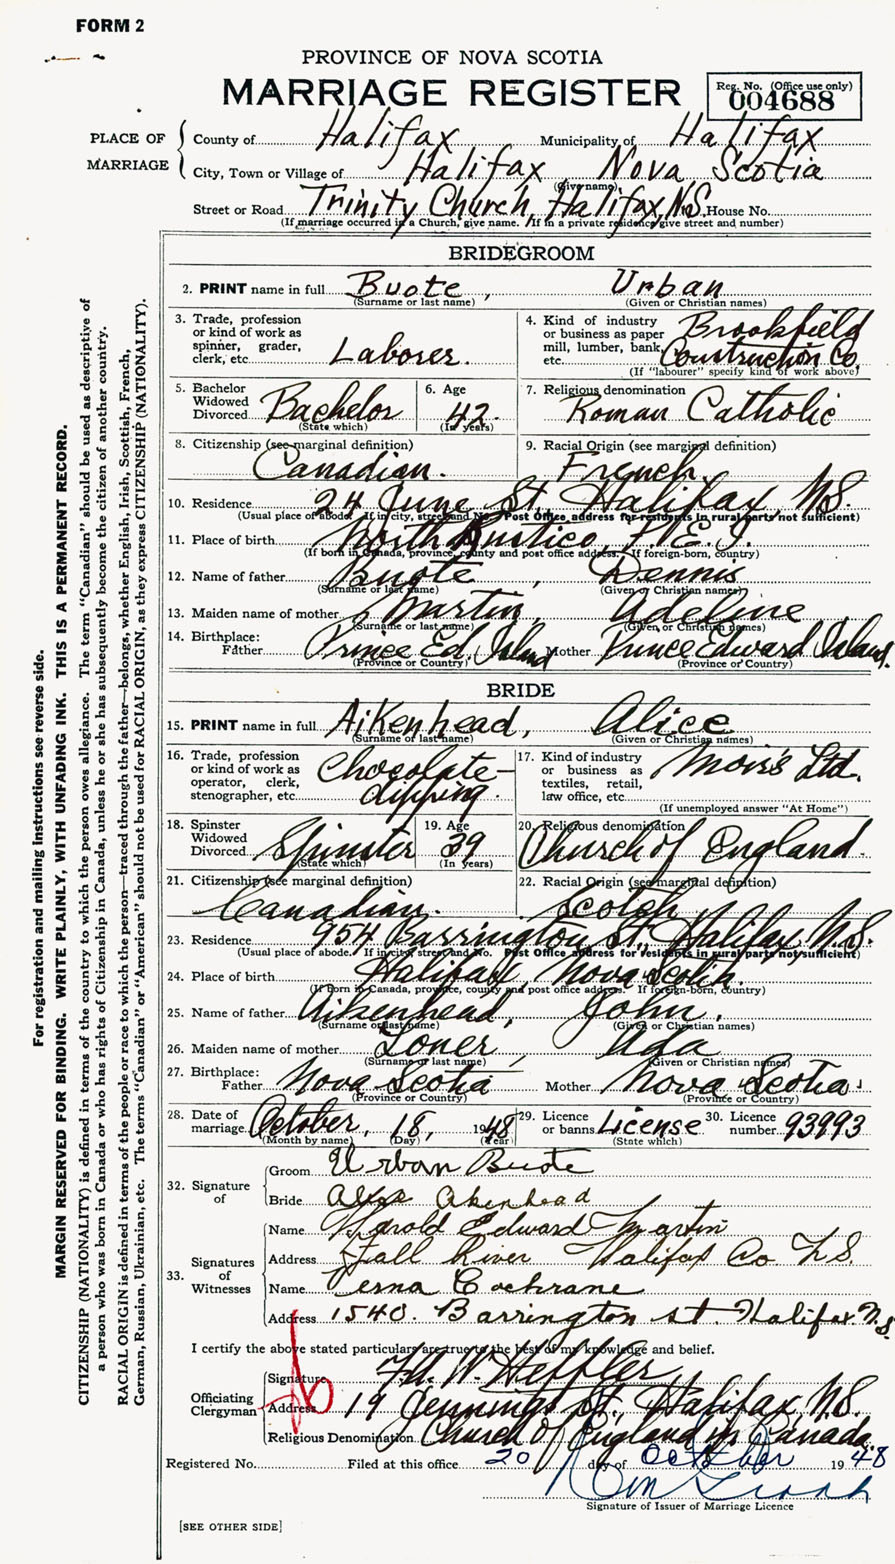 FORM 2
PROVINCE OF NOVA SCOTIA
MARRIAGE REGISTER
Reg. No. (Office use only)
004688
PLACE OF MARRIAGE
County of Halifax Municipality of Halifax
City, Town or Village of Halifax Nova Scotia
(Give name)
Street or Road Trinity Church, Halifax, N.S. House No.
(If marriage occurred in a Church, give name. If in a private residence give street and number)
BRIDEGROOM
2. PRINT name in full Buote, Urban
(Surname or last name) (Given or Christian names)
3. Trade, profession or kind of work as spinner, grader, clerk, etc. Laborer.
4. Kind of industry or business as paper mill, lumber, bank, etc. Brookfield Construction Co.
(If "labourer" specify kind of work above)
5. Bachelor Widowed Divorced Bachelor
(State which)
6. Age 42
(In years)
7. Religious denomination Roman Catholic
8. Citizenship (see marginal definition) Canadian.
9. Racial Origin (see marginal definition) French.
10. Residence 24 June St. Halifax, N.S.
(Usual place of abode. If in city, street and No. Post Office address for residents in rural parts not sufficient)
11. Place of birth North Rustico, P.E.I.
(If born in Canada, province, county and post office address. If foreign-born, country)
12. Name of father Buote, Dennis
(Surname or last name) (Given or Christian names)
13. Maiden name of mother Martin, Adeline
(Surname or last name) (Given or Christian names)
14. Birthplace: Father Prince Ed. Island Mother Prince Edward Island.
(Province or Country) (Province or Country)
BRIDE
15. PRINT name in full Aikenhead, Alice
(Surname or last name) (Given or Christian names)
16. Trade, profession or kind of work as operator, clerk, stenographer, etc. Chocolate-dipping.
17. Kind of industry or business as textiles, retail, law office, etc. Moir's Ltd.
(If unemployed answer "At Home")
18. Spinster Widowed Divorced Spinster
(State which)
19. Age 39
(In years)
20. Religious denomination Church of England.
21. Citizenship (see marginal definition) Canadian.
22. Racial Origin (see marginal definition) Scotch
23. Residence 954 Barrington St., Halifax, N.S.
(Usual place of abode. If in city, street and No. Post Office address for residents in rural parts not sufficient)
24. Place of birth Halifax, Nova Scotia.
(If born in Canada, province, county and post office address. If foreign-born, country)
25. Name of father Aikenhead, John.
(Surname or last name) (Given or Christian names)
26. Maiden name of mother Ada
(Surname or last name) (Given or Christian names)
27. Birthplace: Father Nova Scotia Mother Nova Scotia
(Province or Country) (Province or Country)
28. Date of marriage October, 18, 1948
(Month by name) (Day) (Year)
29. Licence or banns License
(State which)
30. Licence number 93993
32. Signature of
Groom Urban Buote
Bride Akenhead
33. Signatures of Witnesses
Name Harold Edward Martin
Address Fall River Halifax Co N.S.
Name Verna Cochrane
Address 1540. Barrington st. Halifax N.S.
I certify the above stated particulars are true to the best of my knowledge and belief.
Officiating Clergyman
Signature W. Heffler
Address 19 Jennings St., Halifax N.S.
Religious Denomination Church of England in Canada
Registered No. Filed at this office 20 day of October 1948
Signature of Issuer of Marriage Licence
[SEE OTHER SIDE]
For registration and mailing instructions see reverse side.
MARGIN RESERVED FOR BINDING. WRITE PLAINLY, WITH UNFADING INK. THIS IS A PERMANENT RECORD.
CITIZENSHIP (NATIONALITY) is defined in terms of the country to which the person owes allegiance. The term "Canadian" should be used as descriptive of
a person who was born in Canada or who has rights of Citizenship in Canada, unless he or she has subsequently become the citizen of another country.
RACIAL ORIGIN is defined in terms of the people or race to which the person—traced through the father—belongs, whether English, Irish, Scottish, French,
German, Russian, Ukrainian, etc. The terms "Canadian" or "American" should not be used for RACIAL ORIGIN, as they express CITIZENSHIP (NATIONALITY).